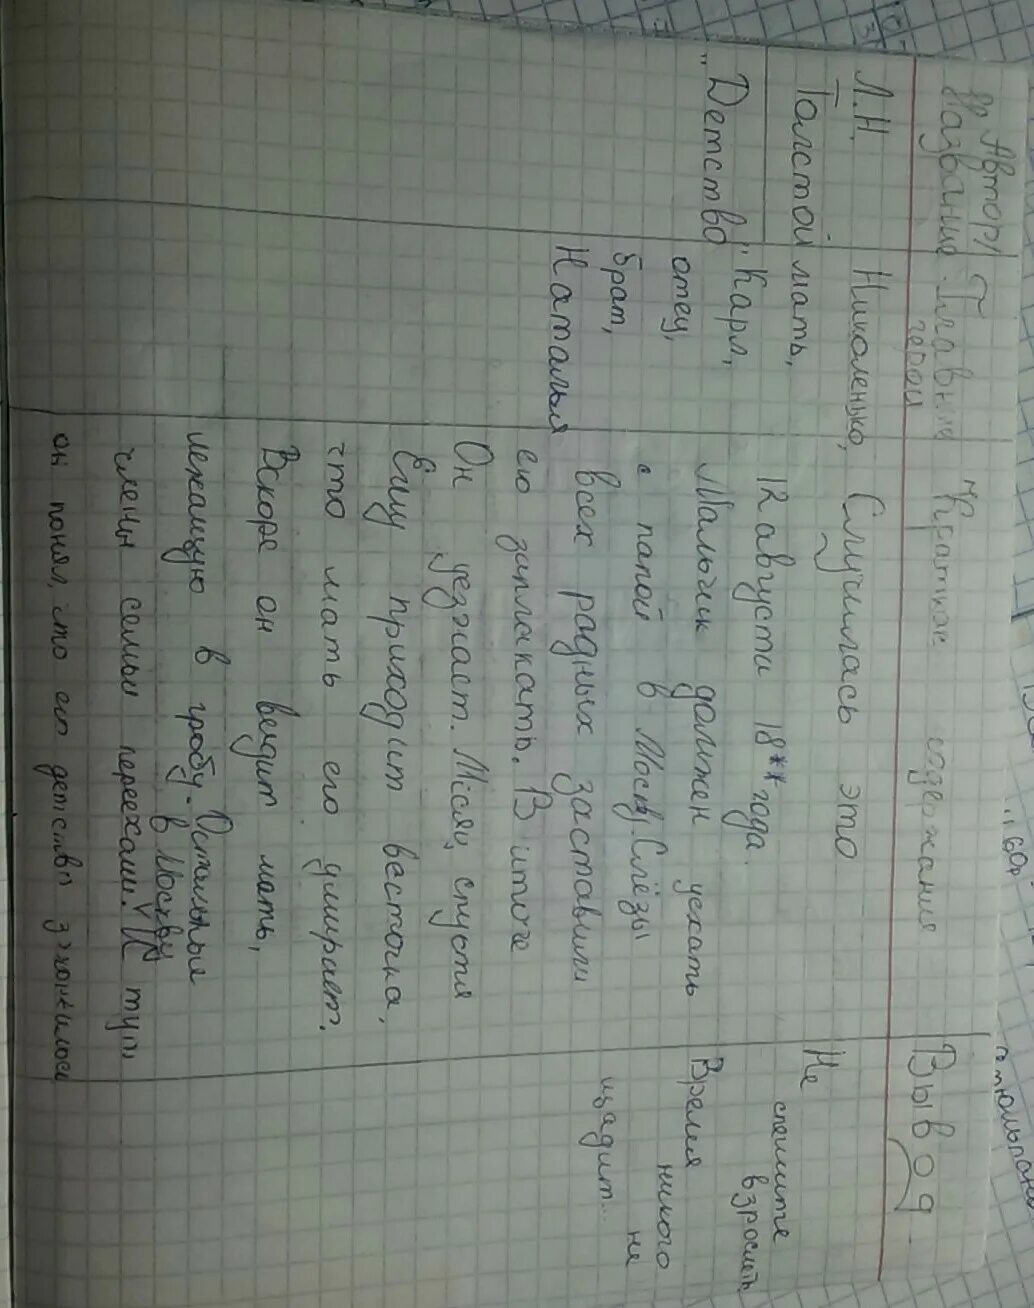 Автор/
Название
Главные
герои
Краткое содержания
Вывод
Л.Н.
Толстой
"Детство"
Николенько,
мать,
Карл,
отец,
брат,
Наталья
Случилась это
12 августи 18** года.
Мальчик должен уехать
с папой в Москву. Слёзы
всех родных заставили
ею заплакать. В итоге
Он уезгает. Місяц спустя
Ему приходит весточка,
что мать его умирает.
Вскоре он видит мать,
лежащую в гробу. Остальные
члены семьи переехали. V И тут
в Москву
он понял, что его детство закончилось
Не
спешите
взрослеть
Время
никого
не
щадит...